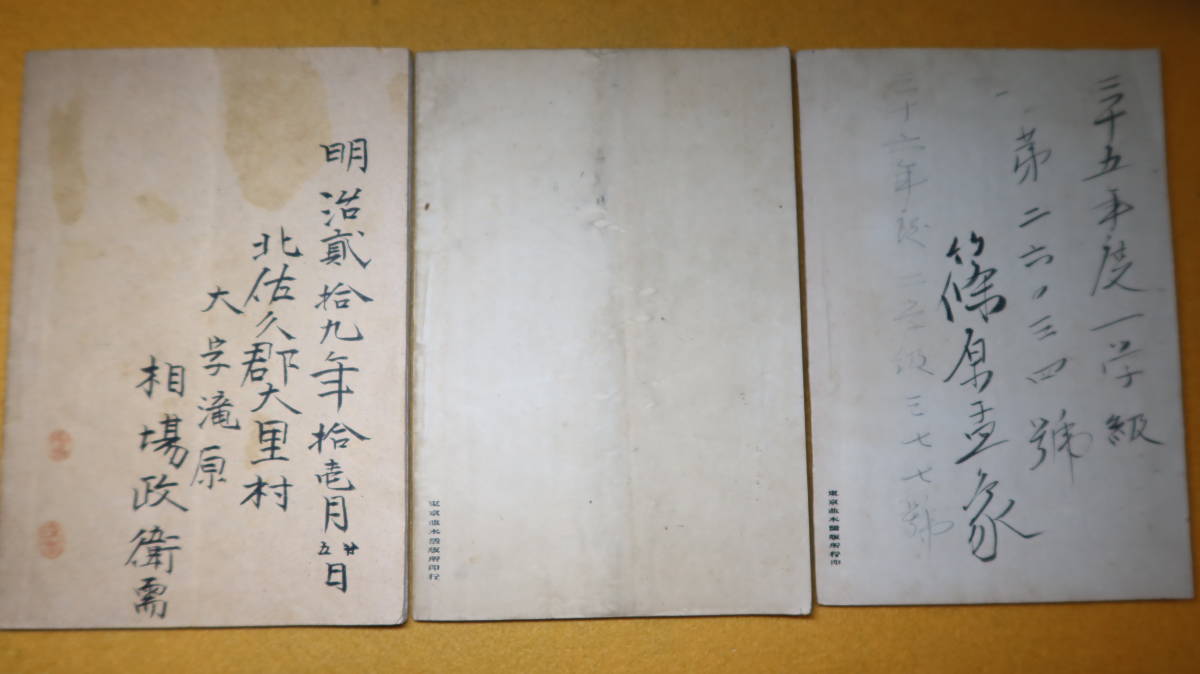 明治貳拾九年拾壱月廿五日
北佐久郡大里村
大字滝原
相場政衛需
東京並木活版所印行
三十五年度一学級
第二六〇三四號
篠原孟象
三十六年度二学級三七七號
東京並木活版所印行